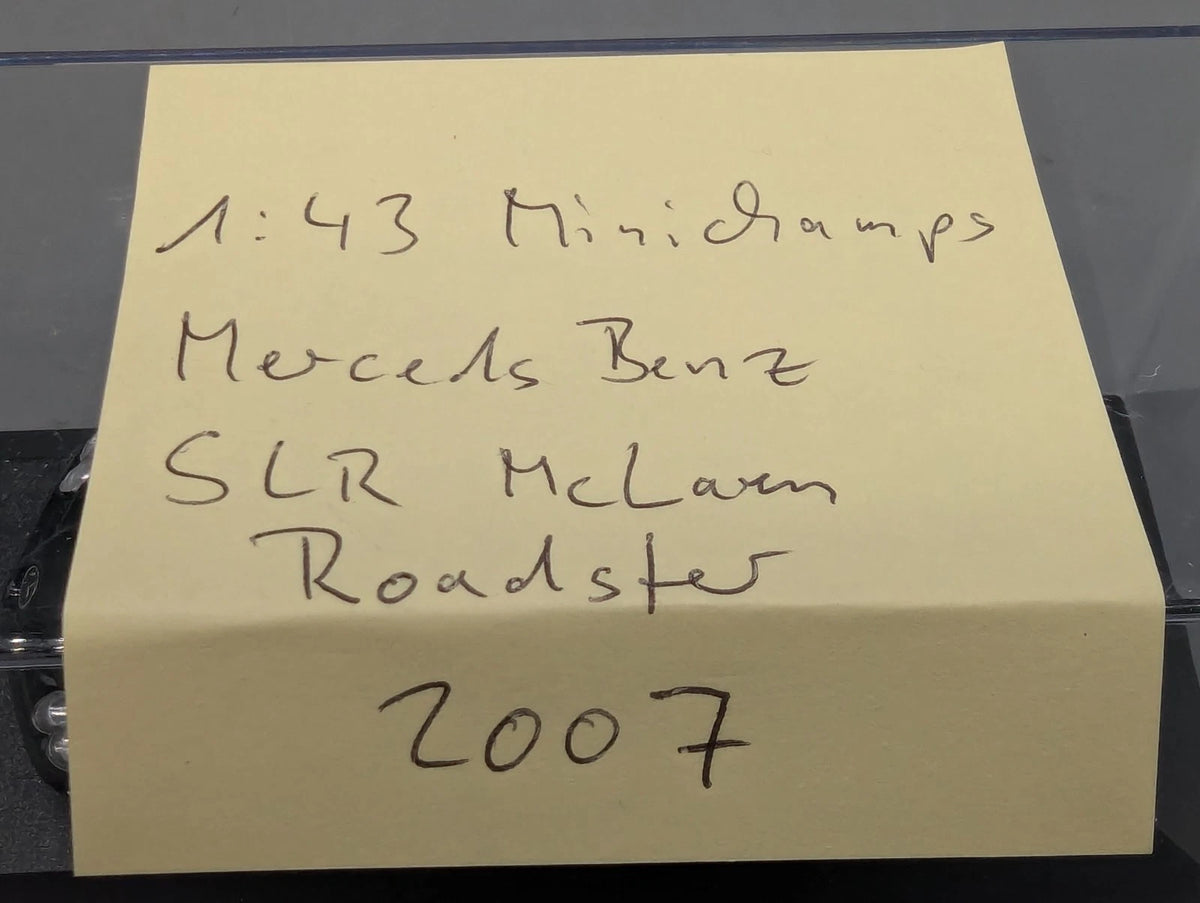 1:43 Minichamps
Merceds Benz
SLR McLaren
Roadster
2007